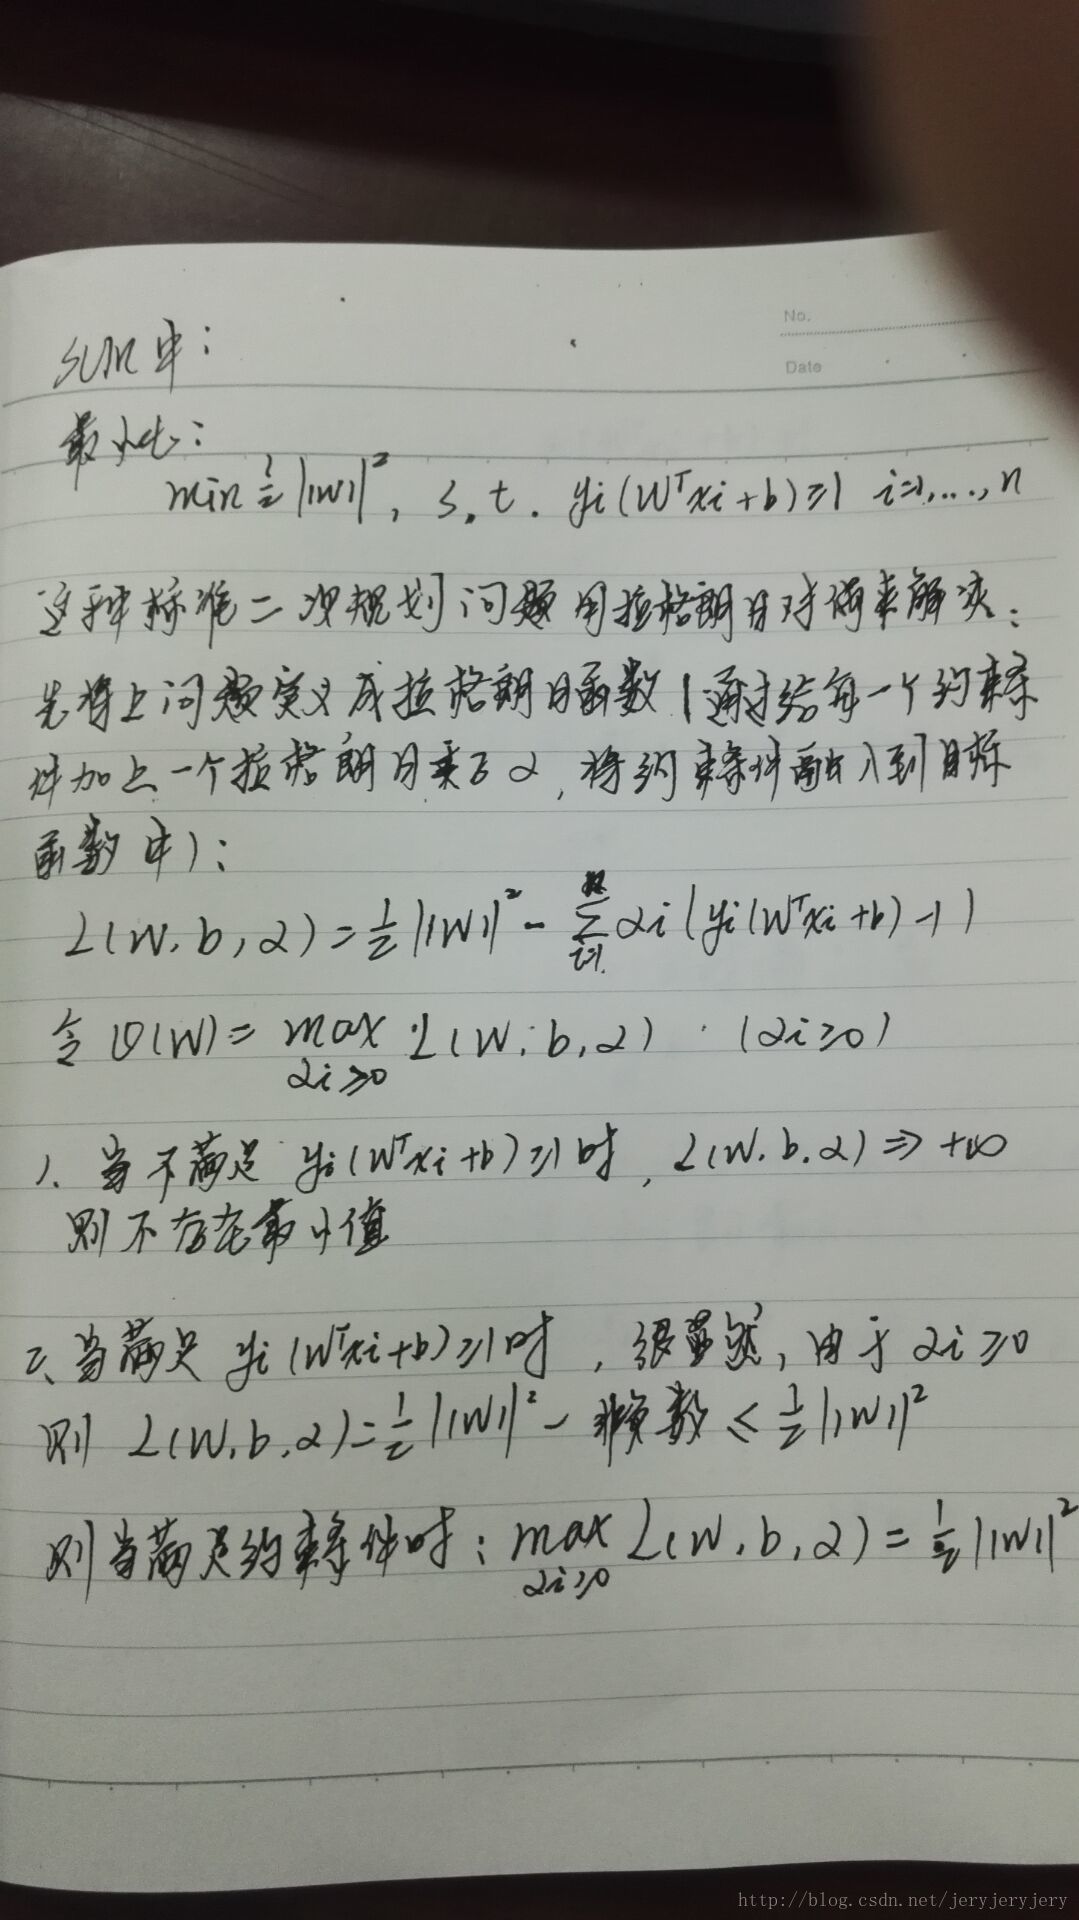 No.
Date
SVM中:
最小化:
min ½||W||², s.t. yi(Wᵀxi+b)≥1 i=1,...,n
这种标准二次规划问题用拉格朗日对偶来解决:
先将上问题定义成拉格朗日函数(通过给每一个约束条
件加上一个拉格朗日乘子α,将约束条件融入到目标
函数中):
L(W,b,α)=½||W||²-∑ᵢ₌₁ⁿ αi(yi(Wᵀxi+b)-1)
令θ(W)= max_{αi≥0} L(W,b,α) (αi≥0)
1、当不满足 yi(Wᵀxi+b)≥1时, L(W,b,α)⇒+∞
则不存在最小值
二、当满足 yi(Wᵀxi+b)≥1时,很显然,由于αi≥0
则 L(W,b,α)=½||W||²-非负数≤½||W||²
则当满足约束条件时: max_{αi≥0} L(W,b,α)=½||W||²
http://blog.csdn.net/jeryjeryjery